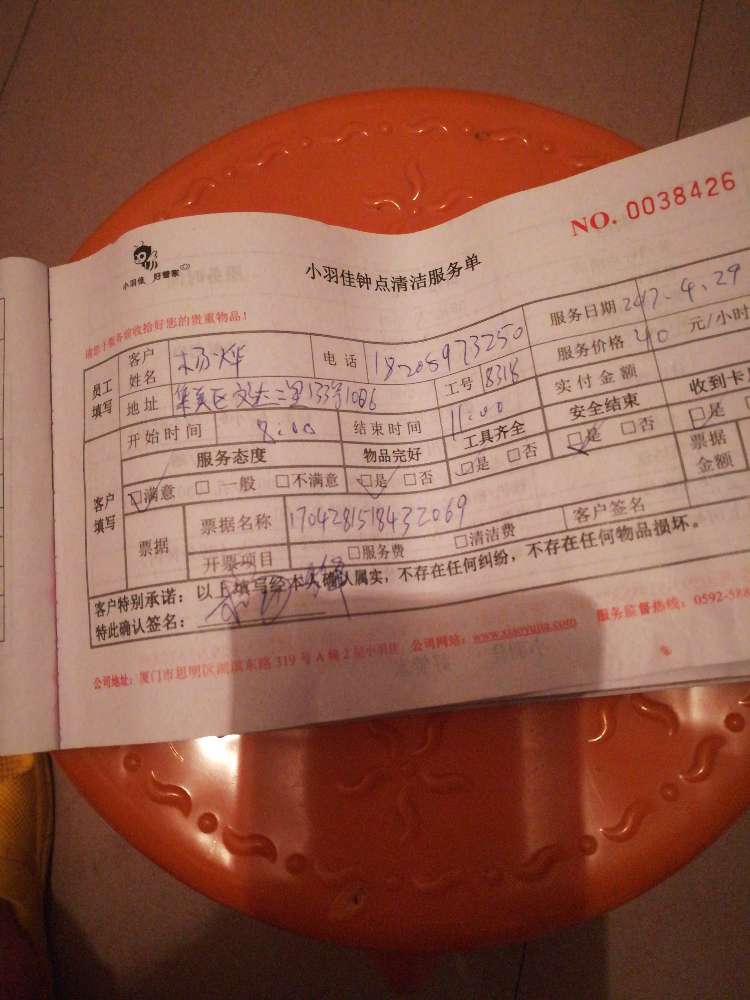 NO. 0038426
小羽佳 好管家
小羽佳钟点清洁服务单
请您于服务前收拾好您的贵重物品！
服务日期 2017.4.29
员工填写 客户姓名 杨烨 电话 18205973250 服务价格 40 元/小时
地址 集美区 133号1006 工号 8318 实付金额
开始时间 8:00 结束时间 11:00 安全结束 收到卡
客户填写 服务态度 物品完好 工具齐全 □是 □否 □是
□满意 □一般 □不满意 □是 □否 □是 □否 票据金额
票据 票据名称 1704281518432069 客户签名
开票项目 □服务费 □清洁费
客户特别承诺：以上填写经本人确认属实，不存在任何纠纷，不存在任何物品损坏。
特此确认签名：
公司地址：厦门市思明区湖滨东路 319 号 A 栋 2 层小羽佳 公司网站：www.xiaoyujia.com 服务监督热线：0592-588